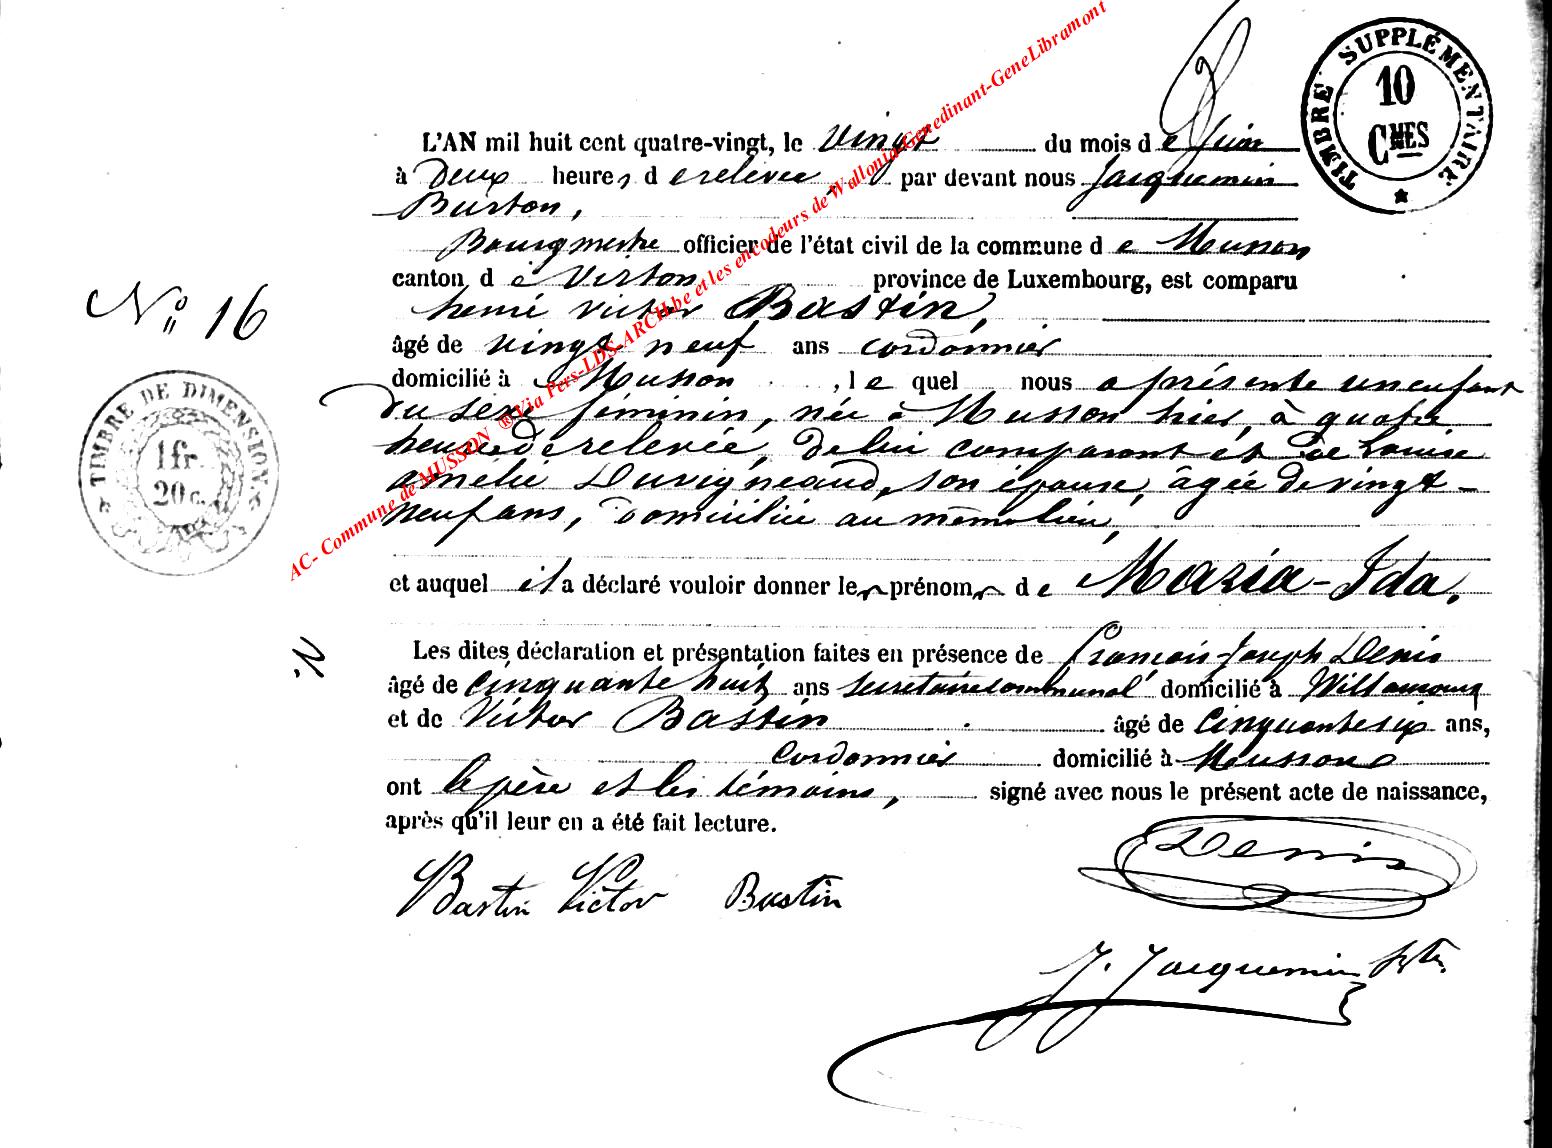 TIMBRE SUPPLÉMENTAIRE
10
CMES
L'AN mil huit cent quatre-vingt, le vingt du mois de Juin
à Deux heures de relevée, par devant nous Jacquemin
Burton,
Bourgmestre officier de l'état civil de la commune de Musson
canton de Virton province de Luxembourg, est comparu
henri victor Bastin,
N° 16
âgé de vingt neuf ans cordonnier
domicilié à Musson, le quel nous a présenté un enfant
du sexe féminin, née à Musson hier, à quatre
heures de relevée, de lui comparant et de Louise
amélie Duvigneaud, son épouse, âgée de vingt-
neuf ans, domiciliée au même lieu,
TIMBRE DE DIMENSION
1fr.
20c.
et auquel il a déclaré vouloir donner les prénoms de Maria-Ida.
N
Les dites déclaration et présentation faites en présence de François-Joseph Denis
âgé de cinquante huit ans secrétaire communal domicilié à Willancourt
et de Victor Bastin âgé de cinquante six ans,
cordonnier domicilié à Musson
ont le père et les témoins, signé avec nous le présent acte de naissance,
après qu'il leur en a été fait lecture.
Denis
Bastin Victor Bastin
J. Jacquemin
AC- Commune de MUSSON ®Via Pers-LDS-ARCH.be et les encodeurs de Wallonia-Genedinant-GeneLibramont